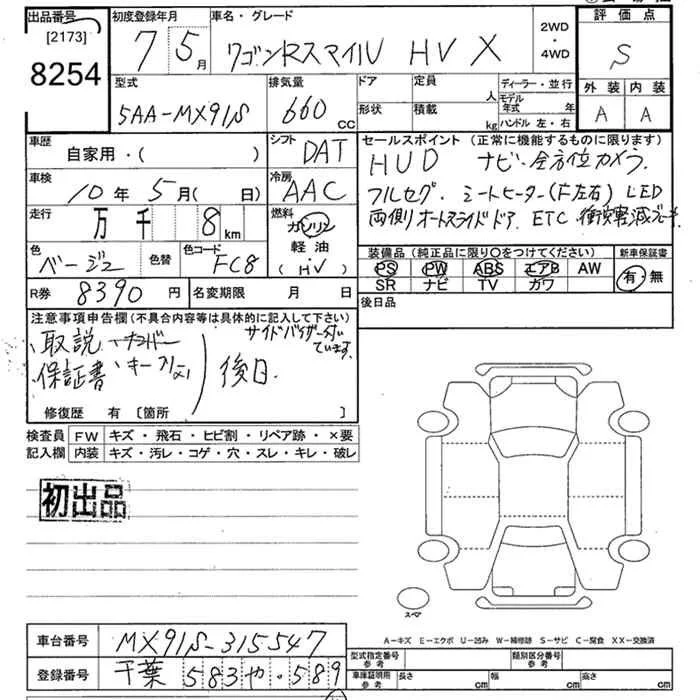 出品番号
[2173]
8254
初度登録年月
7 5月
車名・グレード
ワゴンRスマイル HV X
2WD
・
4WD
評価点
S
外装 内装
A A
型式
5AA-MX91S
排気量
660 CC
ドア
形状
定員 人
積載 kg
ディーラー・並行
モデル年式 年
ハンドル 左・右
車歴
自家用・( )
シフト
DAT
車検
10年 5月( 日)
冷房
AAC
走行
万 千 8 km
燃料
ガソリン
軽油
(HV)
色
ベージュ
色替
色コード
FC8
R券 8390 円
名変期限 月 日
セールスポイント (正常に機能するものに限ります)
HUD ナビ・全方位カメラ
フルセグ・シートヒーター(F左右) LED
両側オートスライドドア ETC 衝突軽減ブレーキ
装備品 (純正品に限り○をつけてください)
PS PW ABS エアB AW
SR ナビ TV カワ
新車保証書
有・無
後日品
注意事項申告欄 (不具合内容等は具体的に記入して下さい)
サイドバイザー付いています。
取説
保証書
後日。
修復歴 有 [箇所 ]
検査員 FW キズ・飛石・ヒビ割・リペア跡・×要
記入欄 内装 キズ・汚レ・コゲ・穴・スレ・キレ・破レ
初出品
スペア
A-キズ E-エクボ U-凹み W-補修跡 S-サビ C-腐食 XX-交換済
車台番号 MX91S-315547
登録番号 千葉 583 や・589
型式指定番号
参考
類別区分番号
参考
車庫証明用
参考
長さ cm
幅 cm
高さ cm